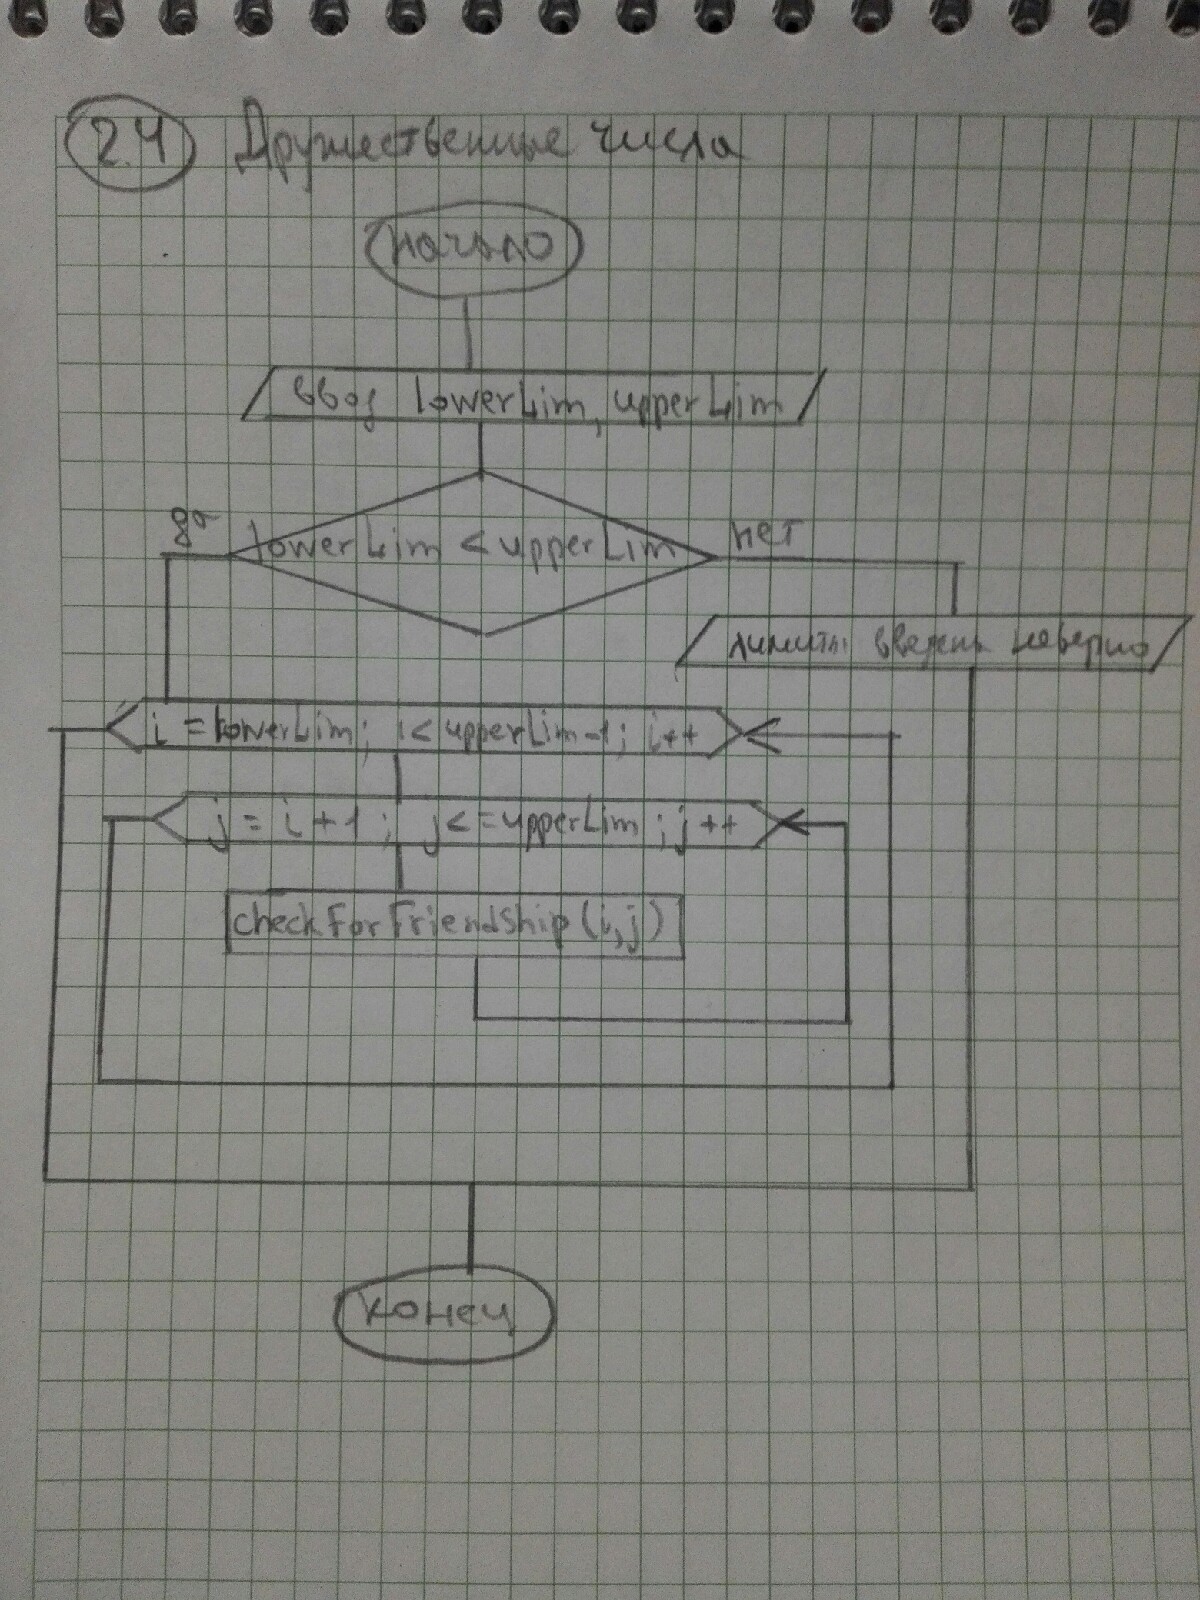 2.4 Дружественные числа
начало
ввод lowerLim, upperLim
да lowerLim < upperLim нет
лимиты введены неверно
i = lowerLim; i < upperLim-1; i++
j = i+1; j <= upperLim; j++
checkForFriendship(i,j)
конец